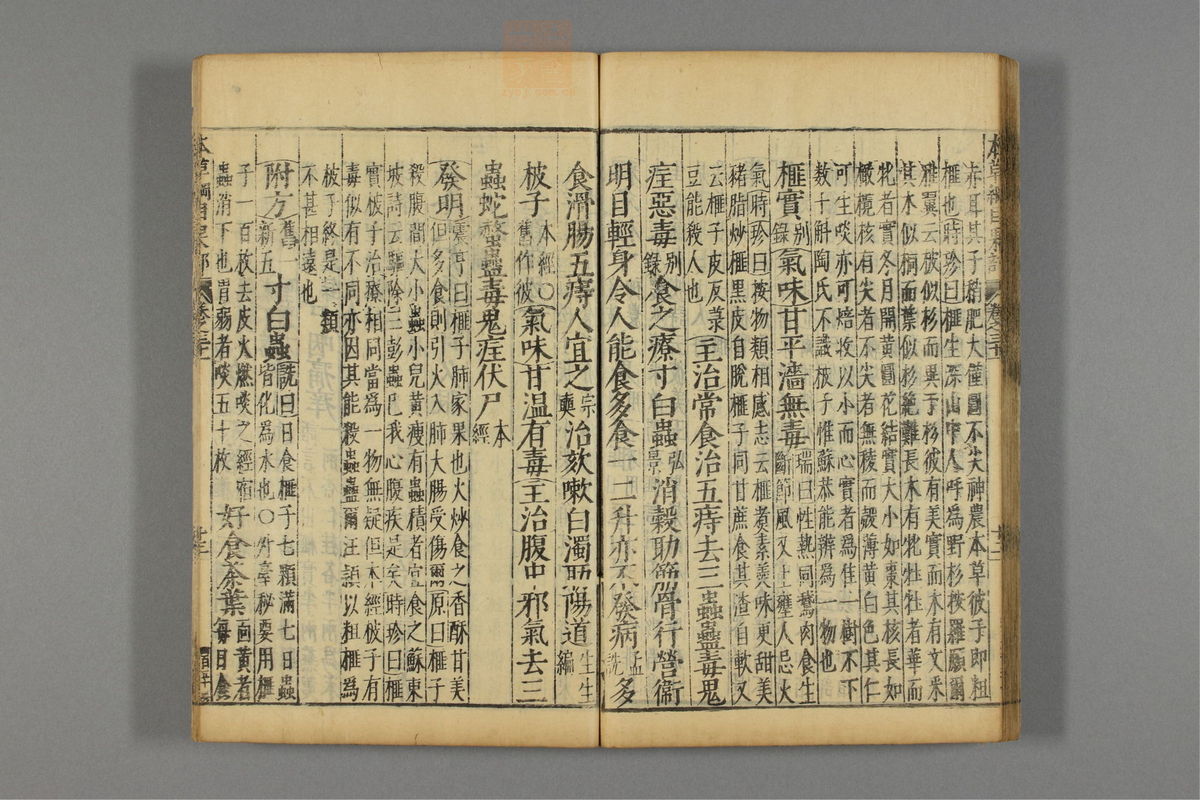 赤耳其子稍肥大僅圓不尖神農本草彼子即粗
榧也時珍曰榧生深山中人呼為野杉按羅願爾
雅翼云柀似杉而異于杉彼有美實而木有文采
其木似桐而葉似杉絶難長木有牝牡牡者華而
牝者實冬月開黃圓花結實大小如棗其核長如
橄欖核有尖者不尖者無稜而殼薄黃白色其仁
可生啖亦可焙收以小而心實者為佳一樹不下
数十斛陶氏不識柀子惟蘇恭能辨為一物也
榧實別錄氣味甘平濇無毒瑞曰性熱同鵝肉食生斷節風又上壅人忌火
氣時珍曰按物類相感志云榧煑素羹味更甜美
猪脂炒榧黑皮自脫榧子同甘蔗食其渣自軟又
云榧子皮反菉豆能殺人也主治常食治五痔去三蟲蠱毒鬼
疰惡毒別錄食之療寸白蟲弘景消穀助筋骨行營衞
明目輕身令人能食多食一二升亦不發病孟詵多
食滑腸五痔人宜之宗奭治欬嗽白濁助陽道生生編
柀子本經○舊作彼氣味甘溫有毒主治腹中邪氣去三
蟲蛇螫蠱毒鬼疰伏尸本經
發明震亨曰榧子肺家果也火炒食之香酥甘美
但多食則引火入肺大腸受傷爾原曰榧子
殺腹間大小蟲小兒黃瘦有蟲積者宜食之蘇東
坡詩云驅除三彭蟲已我心腹疾是矣時珍曰榧
實柀子治療相同當為一物無疑但本經柀子有
毒似有不同亦因其能殺蟲蠱爾汪頴以粗榧為
柀子終是一類
不甚相遠也
附方舊一新五寸白蟲詵曰日食榧子七顆滿七日蟲皆化為水也○外臺秘要用榧
子一百枚去皮火燃啖之經宿
蟲消下也胃弱者啖五十枚好食茶葉面黃者每日食
本草綱目果部 卷之三十一 廿二